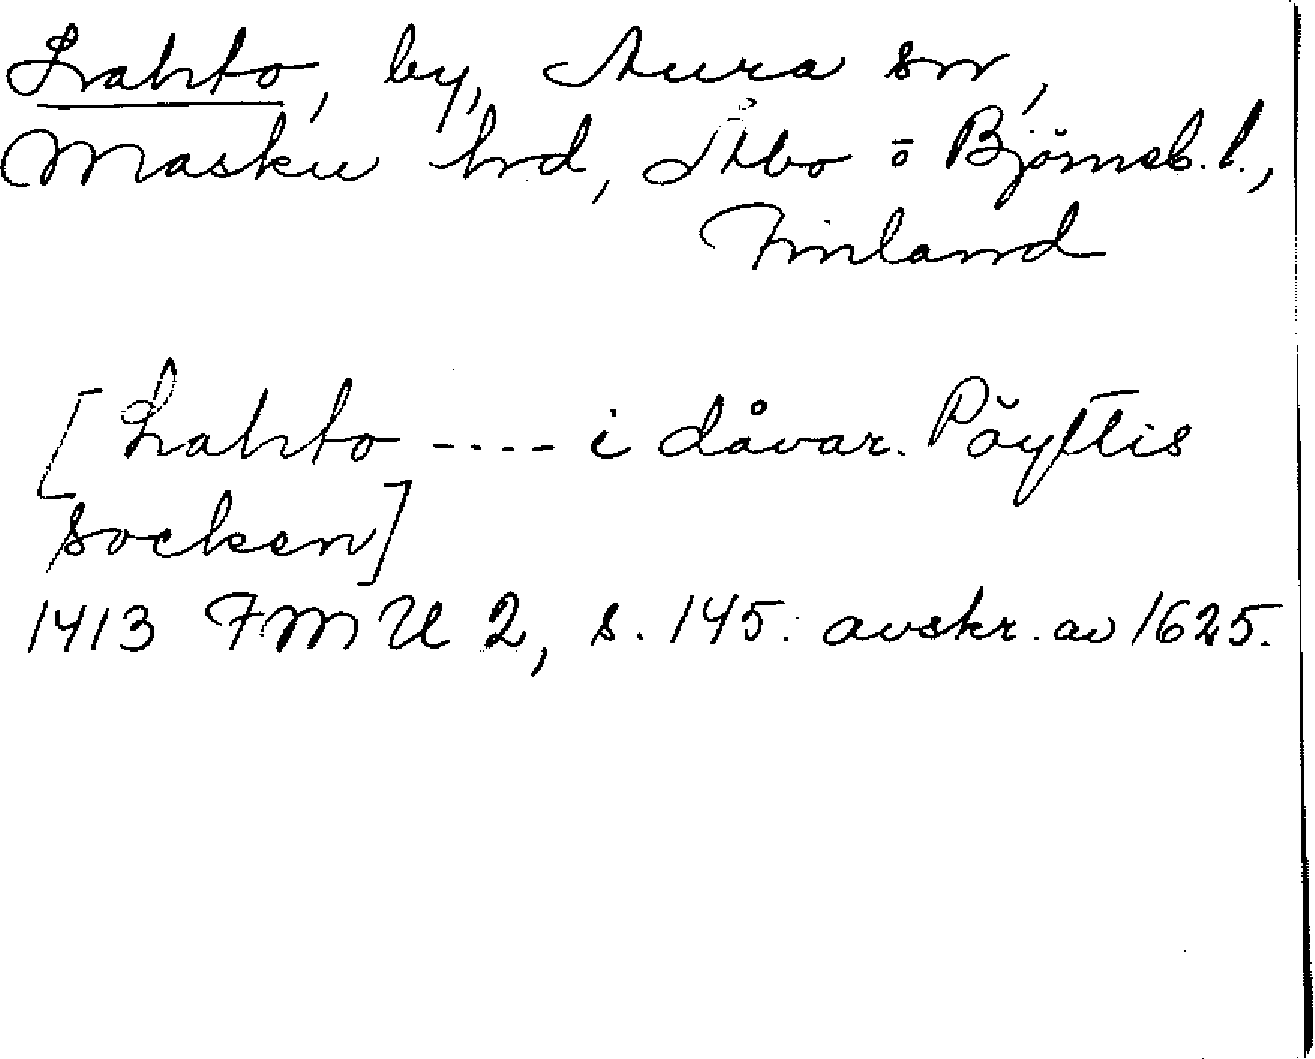 Lahto, by, Aura sn,
Masku hrd, Åbo o Björneb. l.,
Finland
[Lahto ---- i dåvar. Pöyttis
socken]
1413 FMU 2, s. 145. avskr. av 1625.